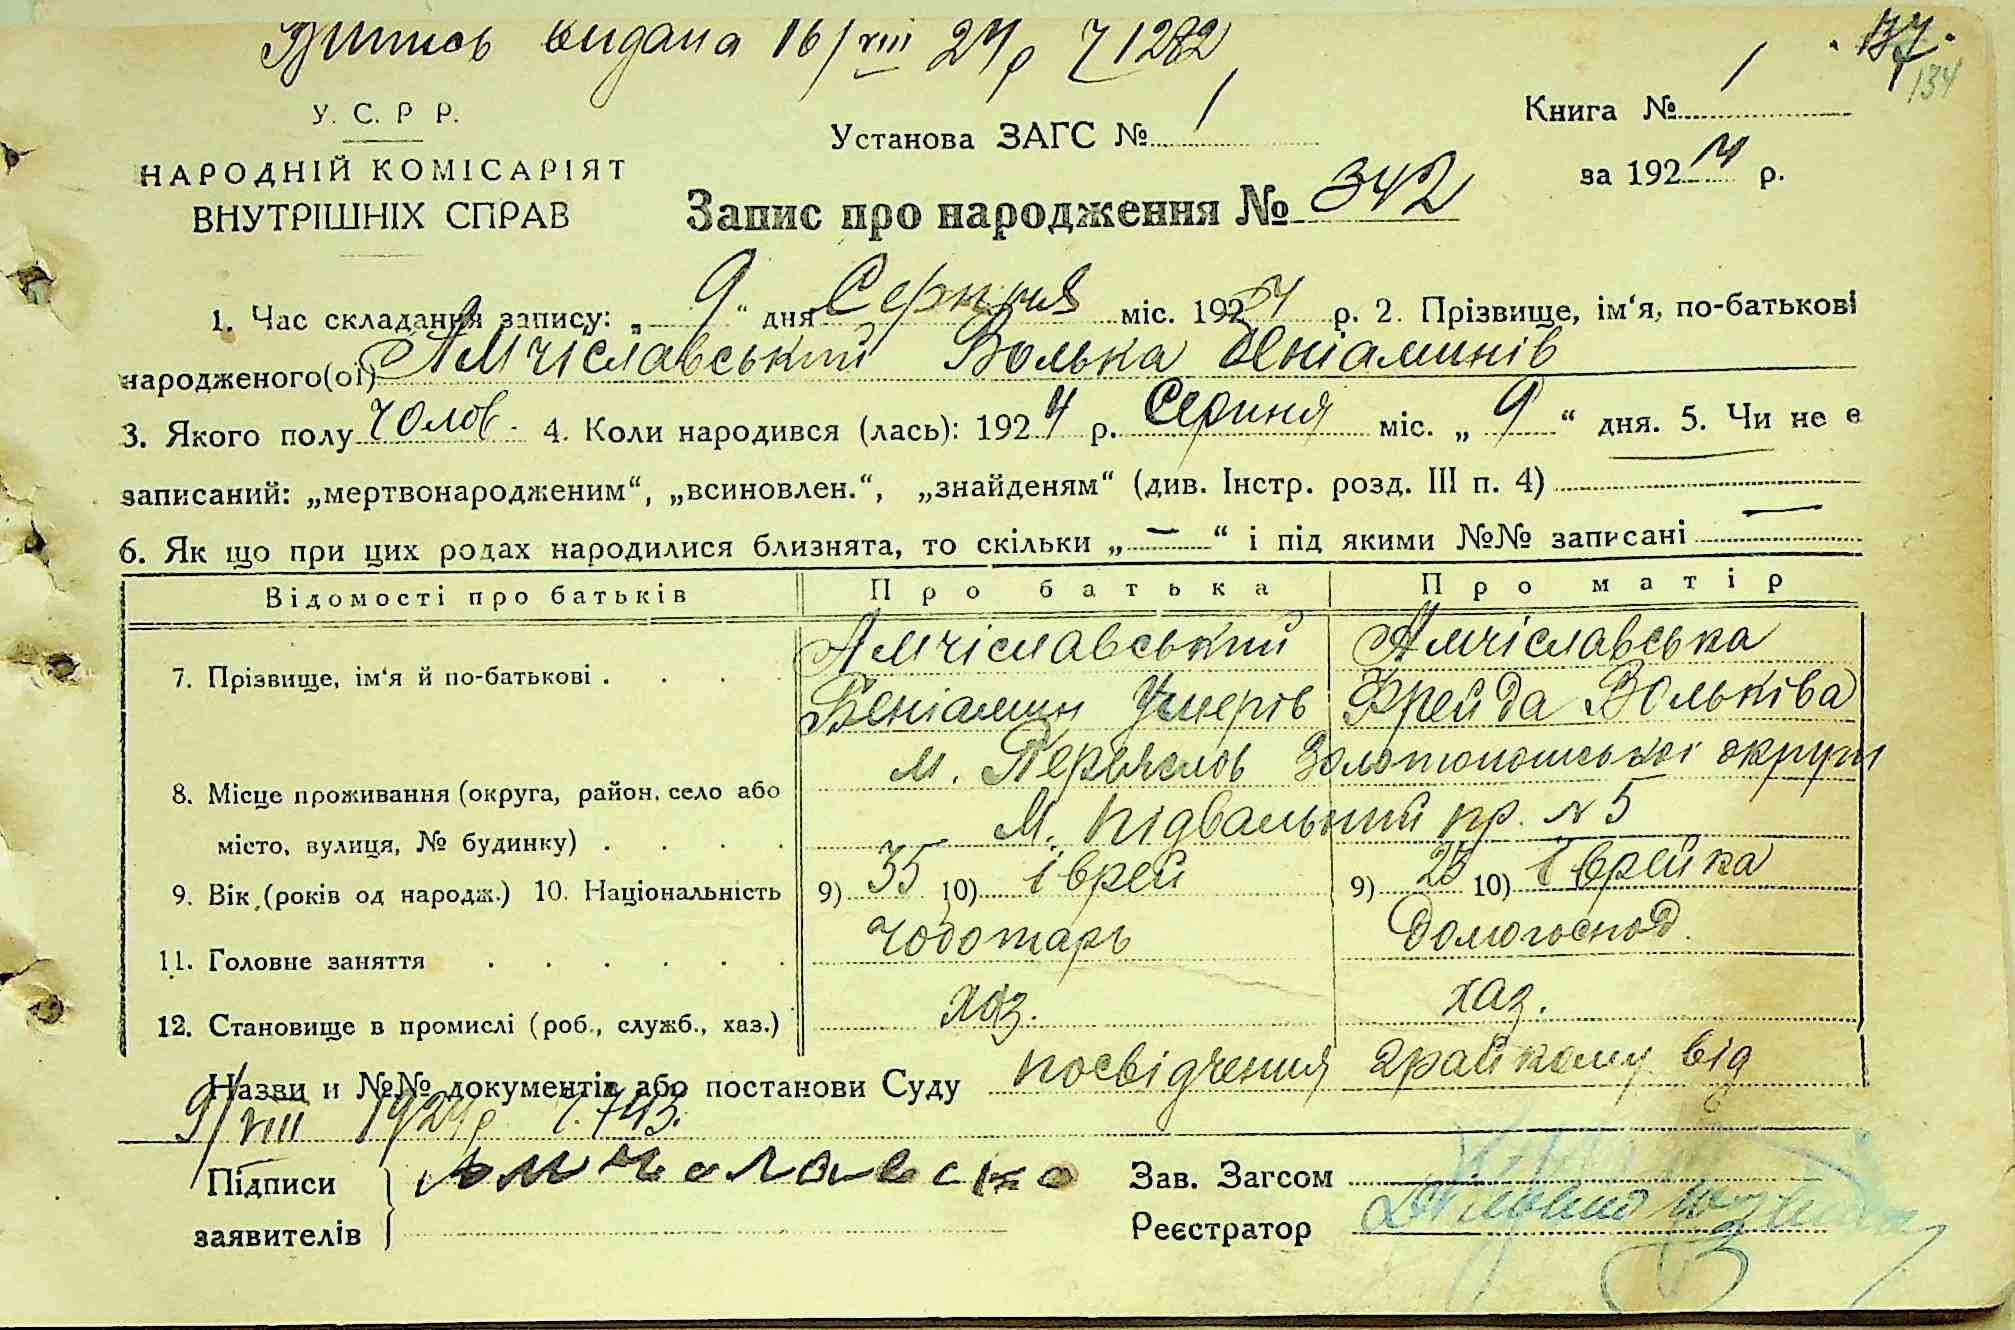 Витись видана 16/VIII 24 р 1282
137.
134
У. С. Р Р.
НАРОДНІЙ КОМІСАРІЯТ
ВНУТРІШНІХ СПРАВ
Установа ЗАГС № 1
Книга № 1
за 1924 р.
Запис про народження № 342
1. Час складання запису: „ 9 “ дня Серпня міс. 1924 р. 2. Прізвище, ім‘я, по-батькові
народженого(ої) Амчіславський Волька Беніаминів
3. Якого полу чолов. 4. Коли народився (лась): 1924 р. Серпня міс. „ 9 “ дня. 5. Чи не є
записаний: „мертвонародженим“, „всиновлен.“, „знайденям“ (див. Інстр. розд. III п. 4)
6. Як що при цих родах народилися близнята, то скільки „ — “ і під якими №№ записані —
Відомості про батьків Про батька Про матір
7. Прізвище, ім‘я й по-батькові . . . . Амчіславський Амчіславська
Беніамин Умерів Фрейда Вольківа
м. Переяслов Золотоношської округи
8. Місце проживання (округа, район, село або
М. Підвальний пр. № 5
місто, вулиця, № будинку) . . . .
9. Вік (років од народж.) 10. Національність 9) 35 10) Єврей 9) 25 10) Єврейка
11. Головне заняття . . . . . . Чоботарь Домогоспод.
12. Становище в промислі (роб., служб., хаз.) хаз. хаз.
Назви и №№ документів або постанови Суду посвідчення райкому від
9/VIII 1924 р. 743.
Підписи Амчславска Зав. Загсом
заявителів Реєстратор